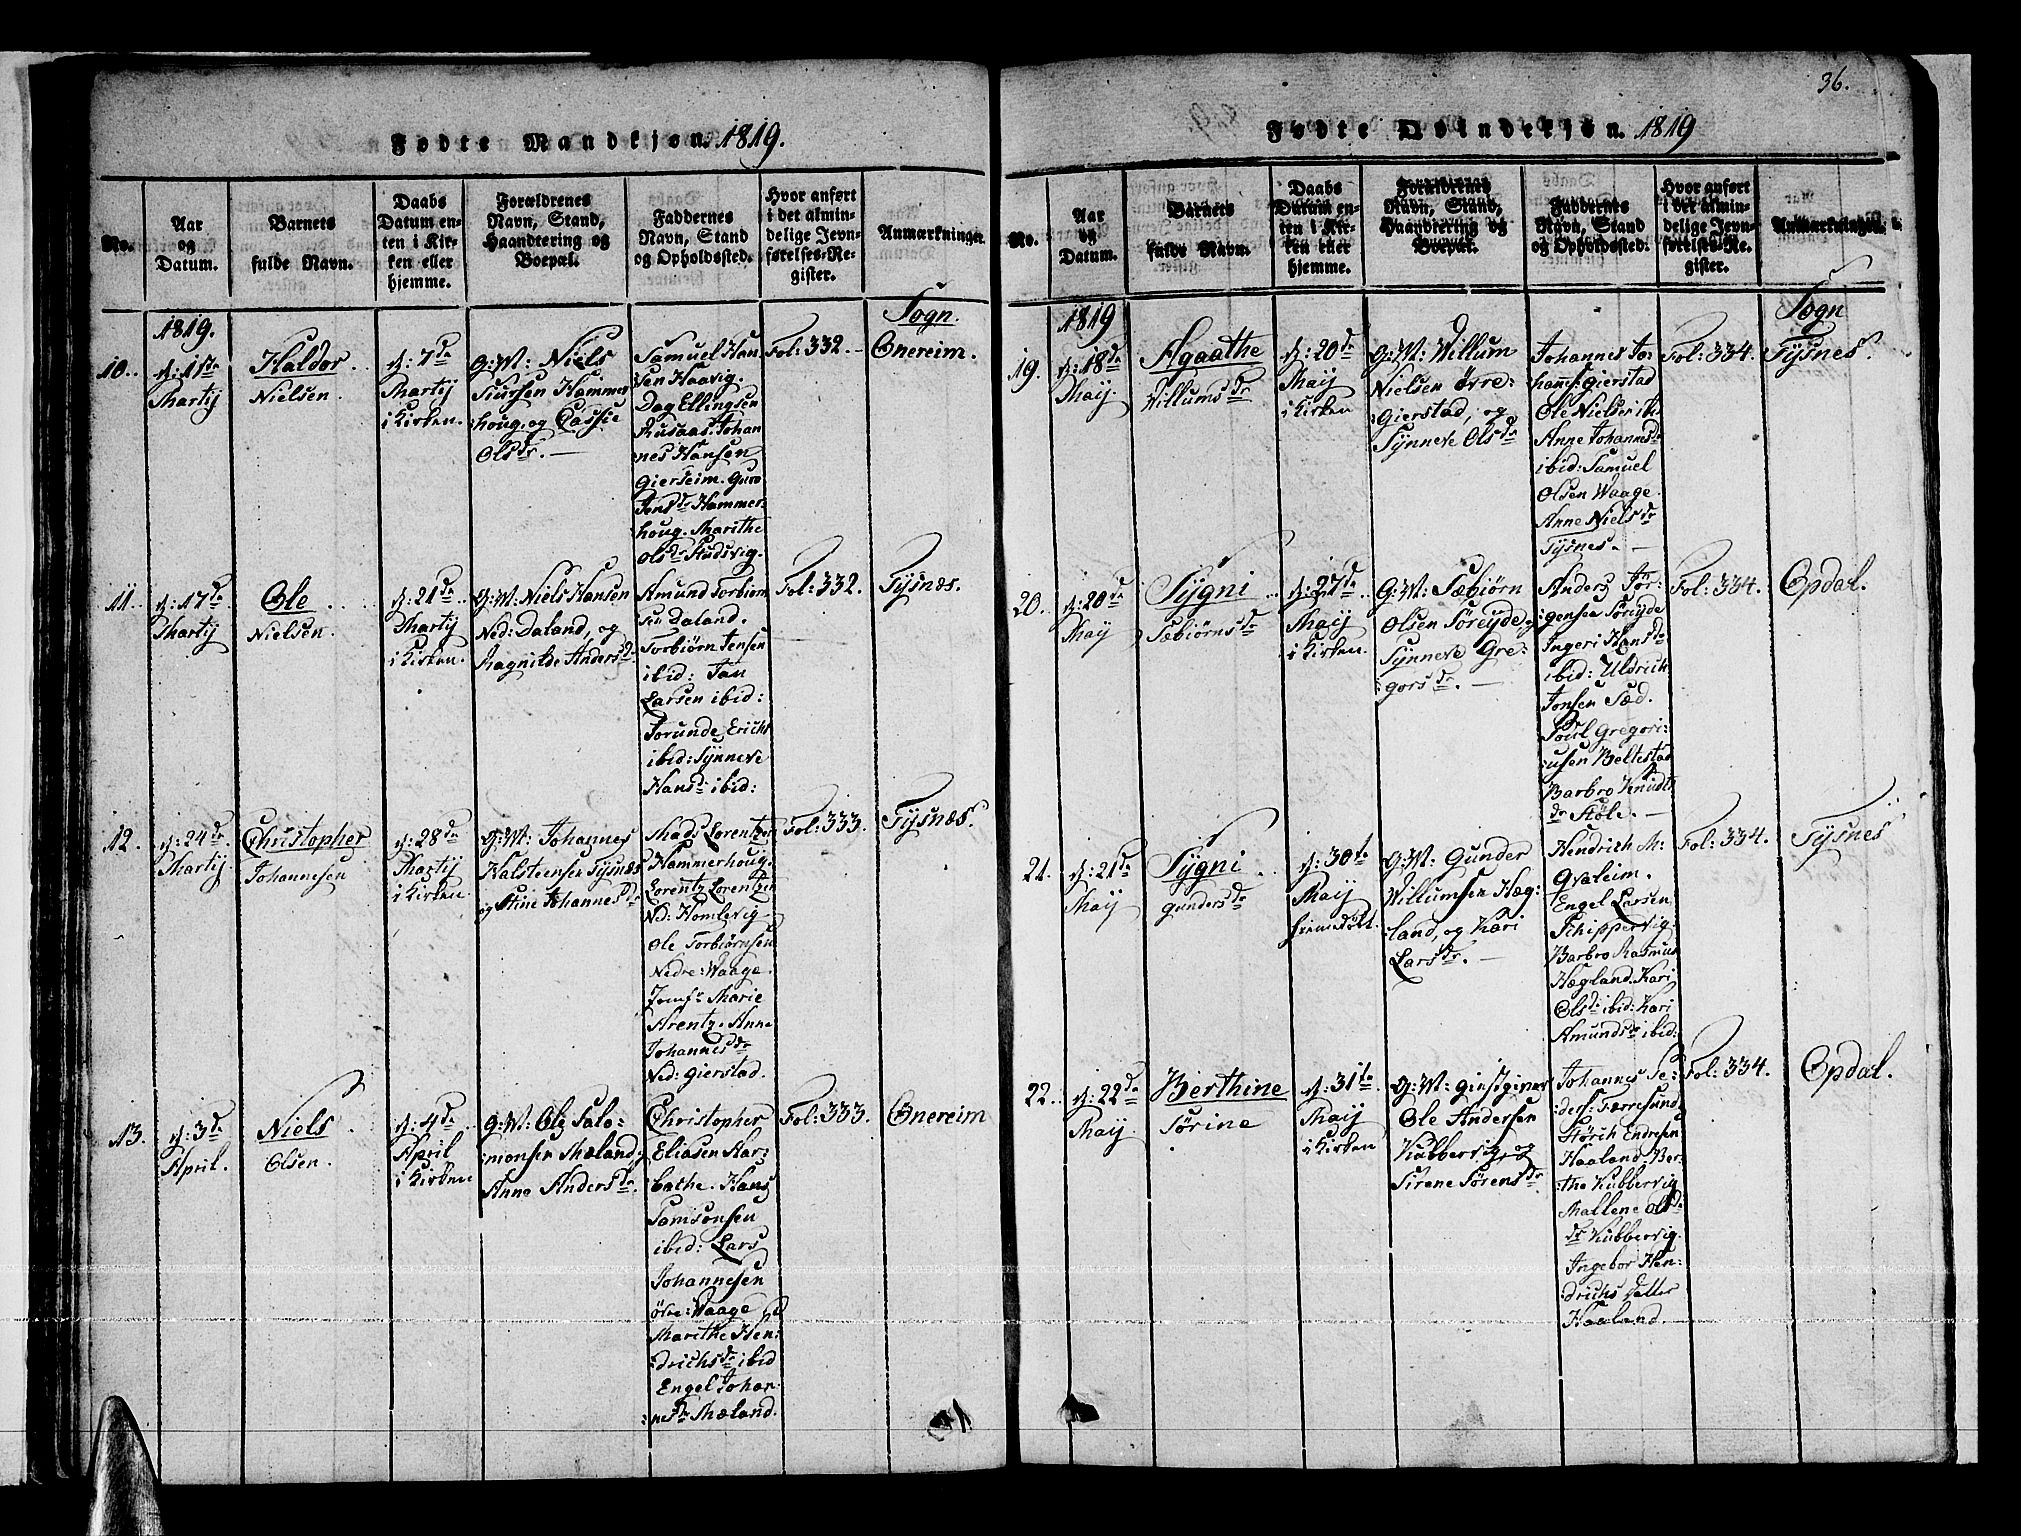 Fødte Mandkjøn. 1819.
No.
Aar
og
Datum.
Barnets
fulde Navn.
Daabs
Datum en-
ten i Kir-
ken eller
hjemme.
Forældrenes
Navn, Stand,
Haandtering og
Boepæl.
Faddernes
Navn, Stand
og Opholdssted.
Hvor anført
i det almin-
delige Jevn-
førelses-Re-
gister.
Anmærkninger.
1819.
10.
d: 1ste
Martij
Haldor
Nielsen.
d: 7de
Martij
i Kirken.
G: M: Niels
Siursen Hammer
houg, og Cassie
Olsdr. —
Samuel Han
sen Haavig.
Dag Ellingsen
Rusaas. Johan
nes Hansen
Gierseim. Guro
Jensdr Hammer
houg. Marithe
Olsdr Hudsvig.
Fol: 332. —
Sogn.
Onereim.
11.
d: 17de
Martij
Ole
Nielsen.
d: 21de
Martij
i Kirken.
G: M: Niels Hansen
Ned: Daland, og
Ragnilde Andersd
Amund Torbiørn
sen Daland.
Torbiørn Jensen
ibid: Jan
Larsen ibid:
Jorunde Erichs
ibid: Synneve
Hansd: ibid:
Fol: 332.
Tysnæs.
12.
d: 24de
Martij.
Christopher
Johannesen
d: 28de
Martij
i Kirken
G: M: Johannes
Halsteensen Tysnæs
og Stine Johannesdr
Mads Lorentzen
Hammerhoug.
Lorentz Lorentzen
Ned: Homlevig.
Ole Torbiørnsen
Nedre: Waage.
Jomfr Marie
Arentz. Anne
Johannesdr
Ned: Gierstad.
Fol: 333.
Tysnæs.
13.
d: 3de
April.
Niels
Olsen.
d: 4de
April
i Kirken
G: M: Ole Salo:
:monsen Mæland,
Anne Andersdr.
Christopher
Eliasen Har:
bathe. Hans
Samsonsen
ibid: Lars
Johannesen
øvre: Waage
Marithe Hen:
:drichsdr ibid
Engel Johan:
:nesdr Mæland.
Fol: 333.
Onereim
36.
Fødte Qvindekjøn. 1819
No.
Aar
og
Datum.
Barnets
fulde Navn.
Daabs
Datum en-
ten i Kir-
ken eller
hjemme.
Forældrenes
Navn, Stand,
Haandtering og
Boepæl.
Faddernes
Navn, Stand
og Opholdssted.
Hvor anført
i det almin-
delige Jevn-
førelses-Re-
gister.
Anmærkninger.
1819
19.
d: 18de
Maij.
Agaathe
Willumsdr
d: 20de
Maij
i Kirken
G: M: Willum
Nielsen øvre:
Gierstad, og
Synneve Olsdr
Johannes Jo:
hannes: Gierstad
Ole Nielsen ib:
Anne Johannesdr
ibid: Samuel
Olsen Waage.
Anne Nielsdr
Tysnes. —
Fol: 334.
Sogn
Tysnes.
20.
d: 20de
Maij
Sygni
Sæbiørnsdr
d: 27de
Maij
i Kirken.
G: M: Sæbiørn
Olsen Søreyde og
Synneve Gre:
:gorsdr. —
Anders Jør:
gensen Søreyde
Ingeri Hansdr
ibid: Uldrich
Jonsen Sæd.
Poul Gregori:
:usen Beltestad
Barbro Knudt
dr Støle. —
Fol: 334.
Opdal.
21.
d: 21de
Maij
Sygni
Gundersdr
d: 30te
Maij
hiemedøbt.
G: M: Gunder
Willumsen Hæg:
:land, og Kari
Larsdr. —
Hendrich M:
Gvaleim.
Engel Larsen
Schippervig
Barbro Rasmus
Hægland. Kari
Olsdr ibid: Kari
Amundsdr ibid:
Fol: 334.
Tysnes
22.
d: 22de
Maij.
Berthine
Sørine
d: 31te
Maij
i Kirken
G: M: Giestgiver
Ole Andersen
Kubbervig, og
Sirene Sørensdr
Johannes Pe:
:ders: Færresund
Størch Endresen
Haaland. Ber:
the Kubbervig
Mallene Ols
dr Kubbervig.
Ingebor Hen:
:drichs datter
Haaland.
Fol: 334.
Opdal.